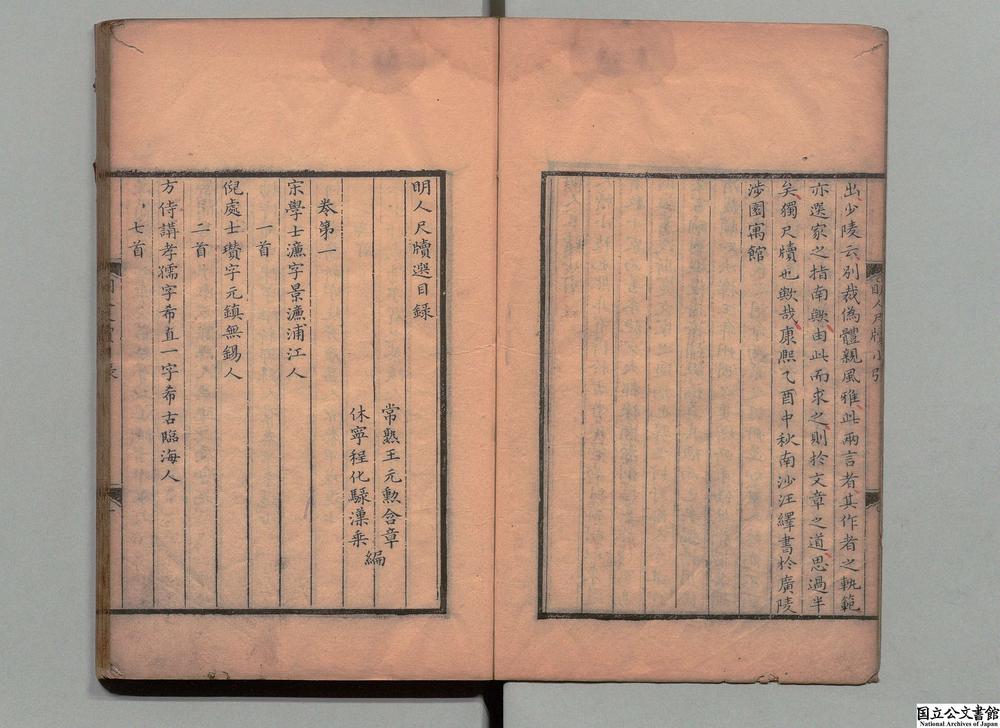 明人尺牘小引
出少陵云別裁偽體親風雅此兩言者其作者之軌範
亦選家之指南歟由此而求之則於文章之道思過半
矣獨尺牘也歟哉康熙乙酉中秋南沙汪繹書於廣陵
涉園寓館
明人尺牘選目錄
常熟王元勲含章
休寧程化騄漢乘
編
卷第一
宋學士濂字景濂浦江人
一首
倪處士瓚字元鎮無錫人
二首
方侍講孝孺字希直一字希古臨海人
七首
国立公文書館
National Archives of Japan